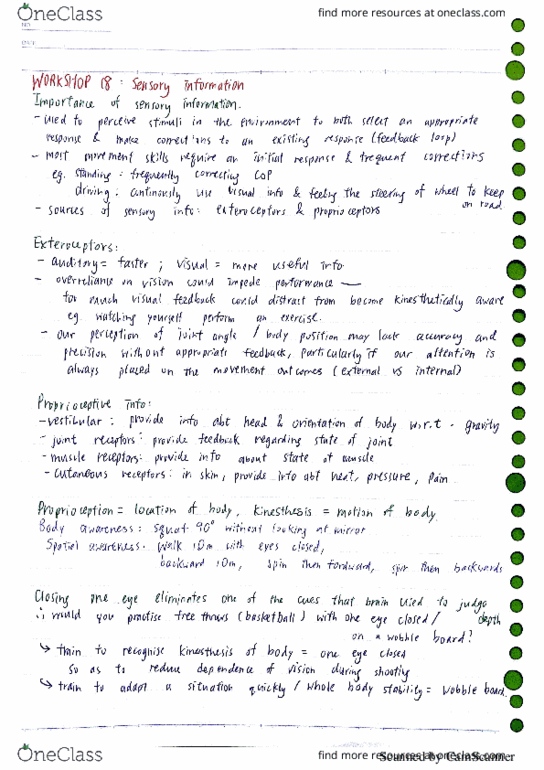 OneClass
find more resources at oneclass.com
NO.
DATE
WORKSHOP 18 : Sensory Information
Importance of sensory information.
- used to perceive stimuli in the environment to both select an appropriate
response & make corrections to an existing response (feedback loop)
- most movement skills require an initial response & frequent corrections
eg. standing : frequently correcting COP
driving : continously use visual info & feeling the steering of wheel to keep
on road.
- sources of sensory info : exteroceptors & proprioceptors
Exteroceptors :
- auditory = faster ; visual = more useful info
- overreliance on vision could impede performance —
too much visual feedback could distract from become kinesthetically aware
eg. watching yourself perform an exercise.
- our perception of joint angle / body position may lack accuracy and
precision without appropriate feedback, particularly if our attention is
always placed on the movement outcomes (external vs internal)
Proprioceptive info :
- vestibular : provide info abt head & orientation of body w.r.t. gravity
- joint receptors : provide feedback regarding state of joint
- muscle receptors : provide info about state of muscle
- cutaneous receptors : in skin, provide info abt heat, pressure, pain
Proprioception = location of body, kinesthesis = motion of body.
Body awareness : squat 90° without looking at mirror
Spatial awareness : walk 10m with eyes closed,
backward 10m, spin then forward, spin then backwards
Closing one eye eliminates one of the cues that brain used to judge
depth
∴ would you practise free throws (basketball) with one eye closed /
on a wobble board?
↳ train to recognise kinesthesis of body = one eye closed
so as to reduce dependence of vision during shooting
↳ train to adapt a situation quickly / whole body stability = wobble board.
OneClass
find more resources at oneclass.com
Scanned by CamScanner